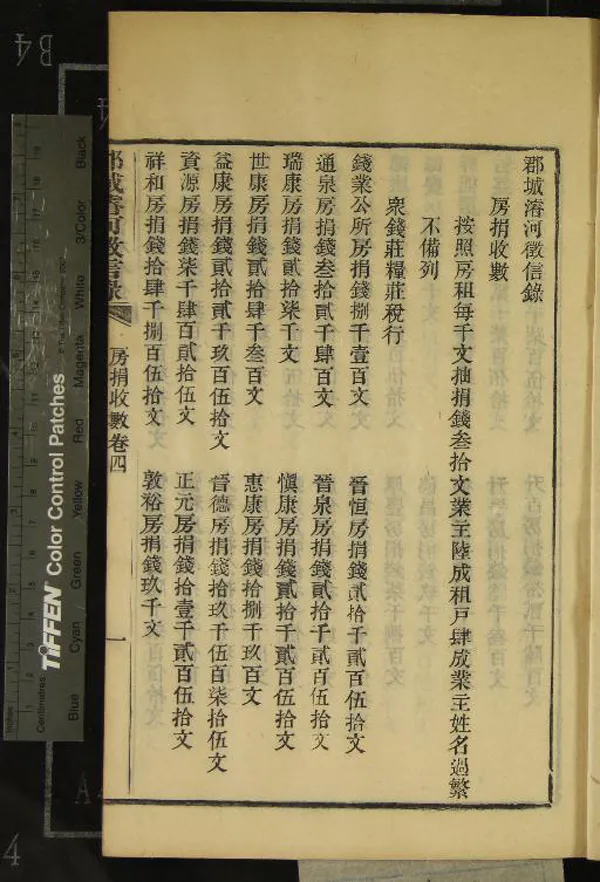 郡城濬河徵信錄
房捐收數
按照房租每千文抽捐錢叁拾文業主陸成租戶肆成業主姓名過繁
不備列
衆錢莊糧莊稅行
錢業公所房捐錢捌千壹百文
晉恒房捐錢貳拾千貳百伍拾文
通泉房捐錢叁拾貳千肆百文
晉泉房捐錢貳拾千貳百伍拾文
瑞康房捐錢貳拾柒千文
愼康房捐錢貳拾千貳百伍拾文
世康房捐錢貳拾肆千叁百文
惠康房捐錢拾捌千玖百文
益康房捐錢貳拾貳千玖百伍拾文
晉德房捐錢拾玖千伍百柒拾伍文
資源房捐錢柒千肆百貳拾伍文
正元房捐錢拾壹千貳百伍拾文
祥和房捐錢拾肆千捌百伍拾文
敦裕房捐錢玖千文
郡城濬河徵信錄
房捐收數卷四
一
B4
4
TIFFEN Color Control Patches
Blue
Cyan
Green
Yellow
Red
Magenta
White
3/Color
Black
Inches
Centimetres